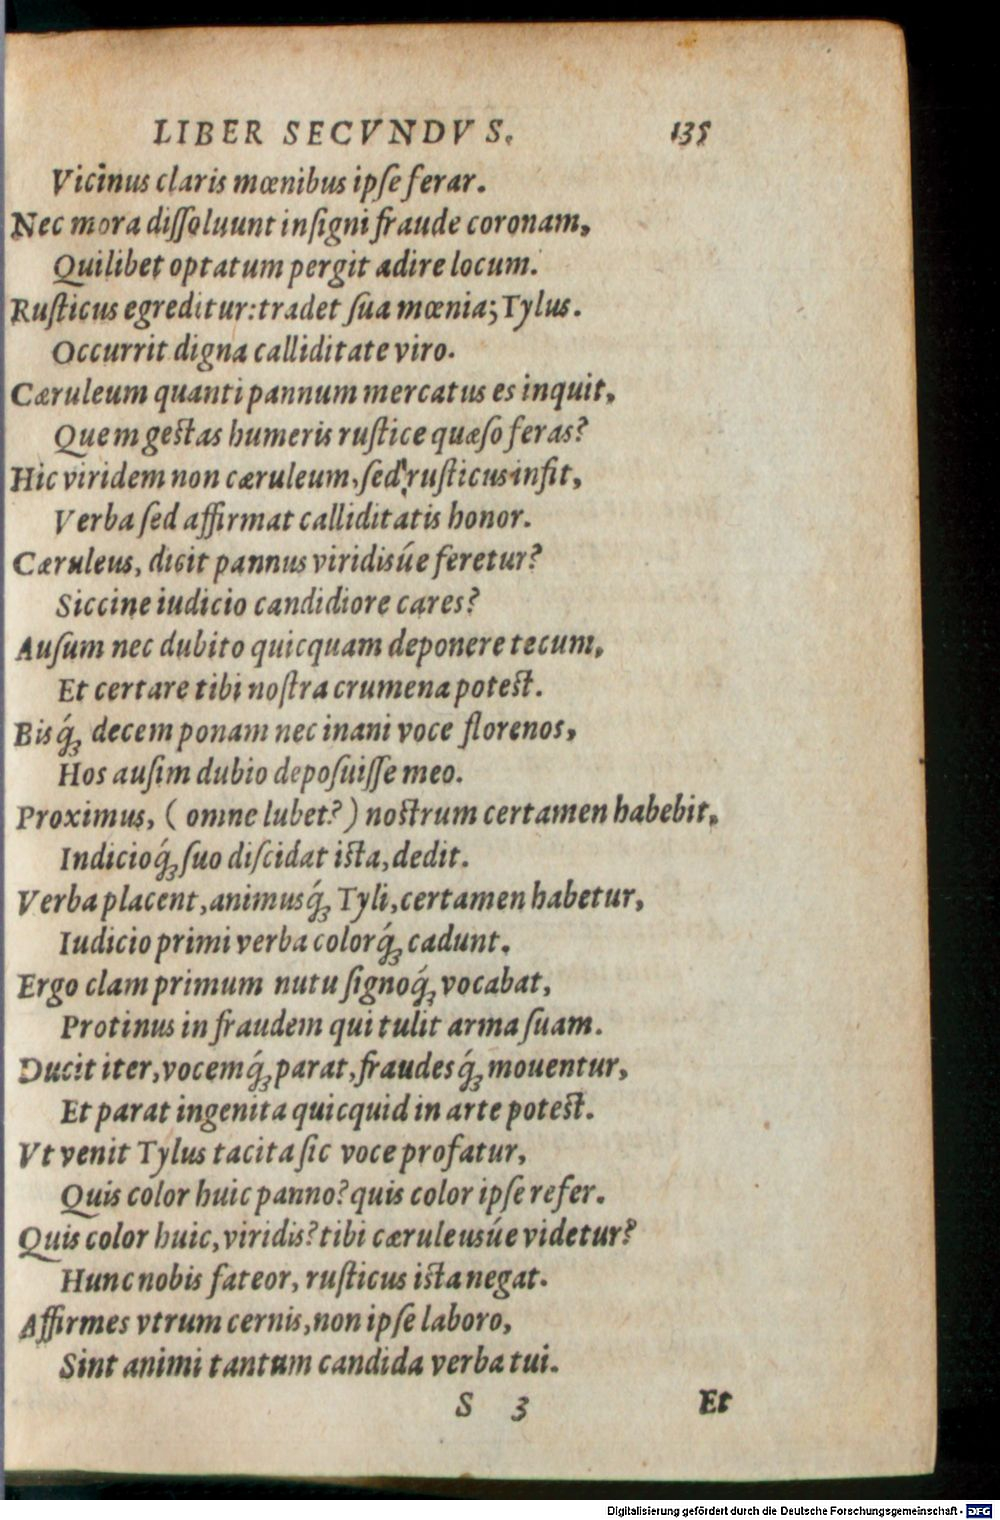 LIBER SECVNDVS. 135
Vicinus claris mœnibus ipſe ferar.
Nec mora diſſoluunt inſigni fraude coronam,
Quilibet optatum pergit adire locum.
Ruſticus egreditur: tradet ſua mœnia; Tylus.
Occurrit digna calliditate viro.
Cæruleum quanti pannum mercatus es inquit,
Quem geſtas humeris ruſtice quæſo feras?
Hic viridem non cæruleum, ſed ruſticus infit,
Verba ſed affirmat calliditatis honor.
Cæruleus, dicit pannus viridisúe feretur?
Siccine iudicio candidiore cares?
Auſum nec dubito quicquam deponere tecum,
Et certare tibi noſtra crumena poteſt.
Bisq́ꝫ decem ponam nec inani voce florenos,
Hos auſim dubio depoſuiſſe meo.
Proximus, (omne lubet?) noſtrum certamen habebit,
Indicioq́ꝫ ſuo diſcidat iſta, dedit.
Verba placent, animusq́ꝫ Tyli, certamen habetur,
Iudicio primi verba colorq́ꝫ cadunt.
Ergo clam primum nutu ſignoq́ꝫ vocabat,
Protinus in fraudem qui tulit arma ſuam.
Ducit iter, vocemq́ꝫ parat, fraudesq́ꝫ mouentur,
Et parat ingenita quicquid in arte poteſt.
Vt venit Tylus tacita ſic voce profatur,
Quis color huic panno? quis color ipſe refer.
Quis color huic, viridis? tibi cæruleusúe videtur?
Hunc nobis fateor, ruſticus iſta negat.
Affirmes vtrum cernis, non ipſe laboro,
Sint animi tantum candida verba tui.
S 3 Et
Digitalisierung gefördert durch die Deutsche Forschungsgemeinschaft - DFG